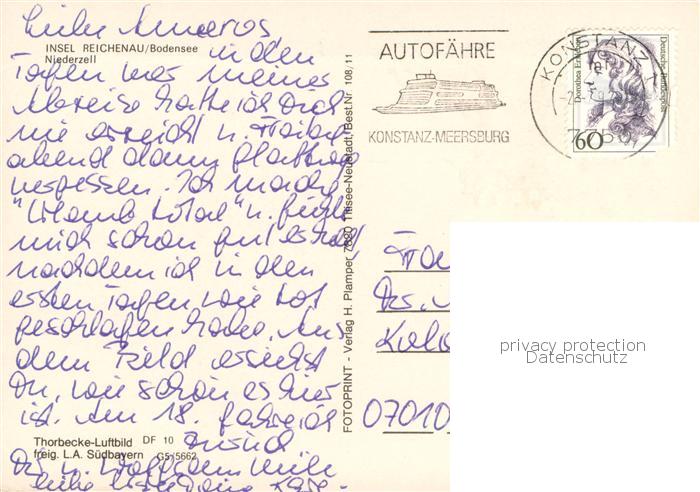 INSEL REICHENAU/Bodensee
Niederzell
Liebe
in den
Tagen vor meiner
Abreise hatte ich Dich
nie erreicht u. Freitag
abend dann
vergessen. Ich mache
"Urlaub total" u. fühle
mich schon gut erholt,
nachdem ich in den
ersten Tagen wie tot
geschlafen habe. Aus
dem Bild ersiehst
Du, wie schön es hier
ist. Am 18. fahre ich
zurück
Thorbecke-Luftbild DF 10
freig. L.A. Südbayern G5/5662
FOTOPRINT - Verlag H. Plamper 7820 Titisee-Neustadt / Best.Nr. 108/11
AUTOFÄHRE
KONSTANZ-MEERSBURG
KONSTANZ 1
Dorothea Erxleben
Deutsche Bundespost
60
07010
privacy protection
Datenschutz